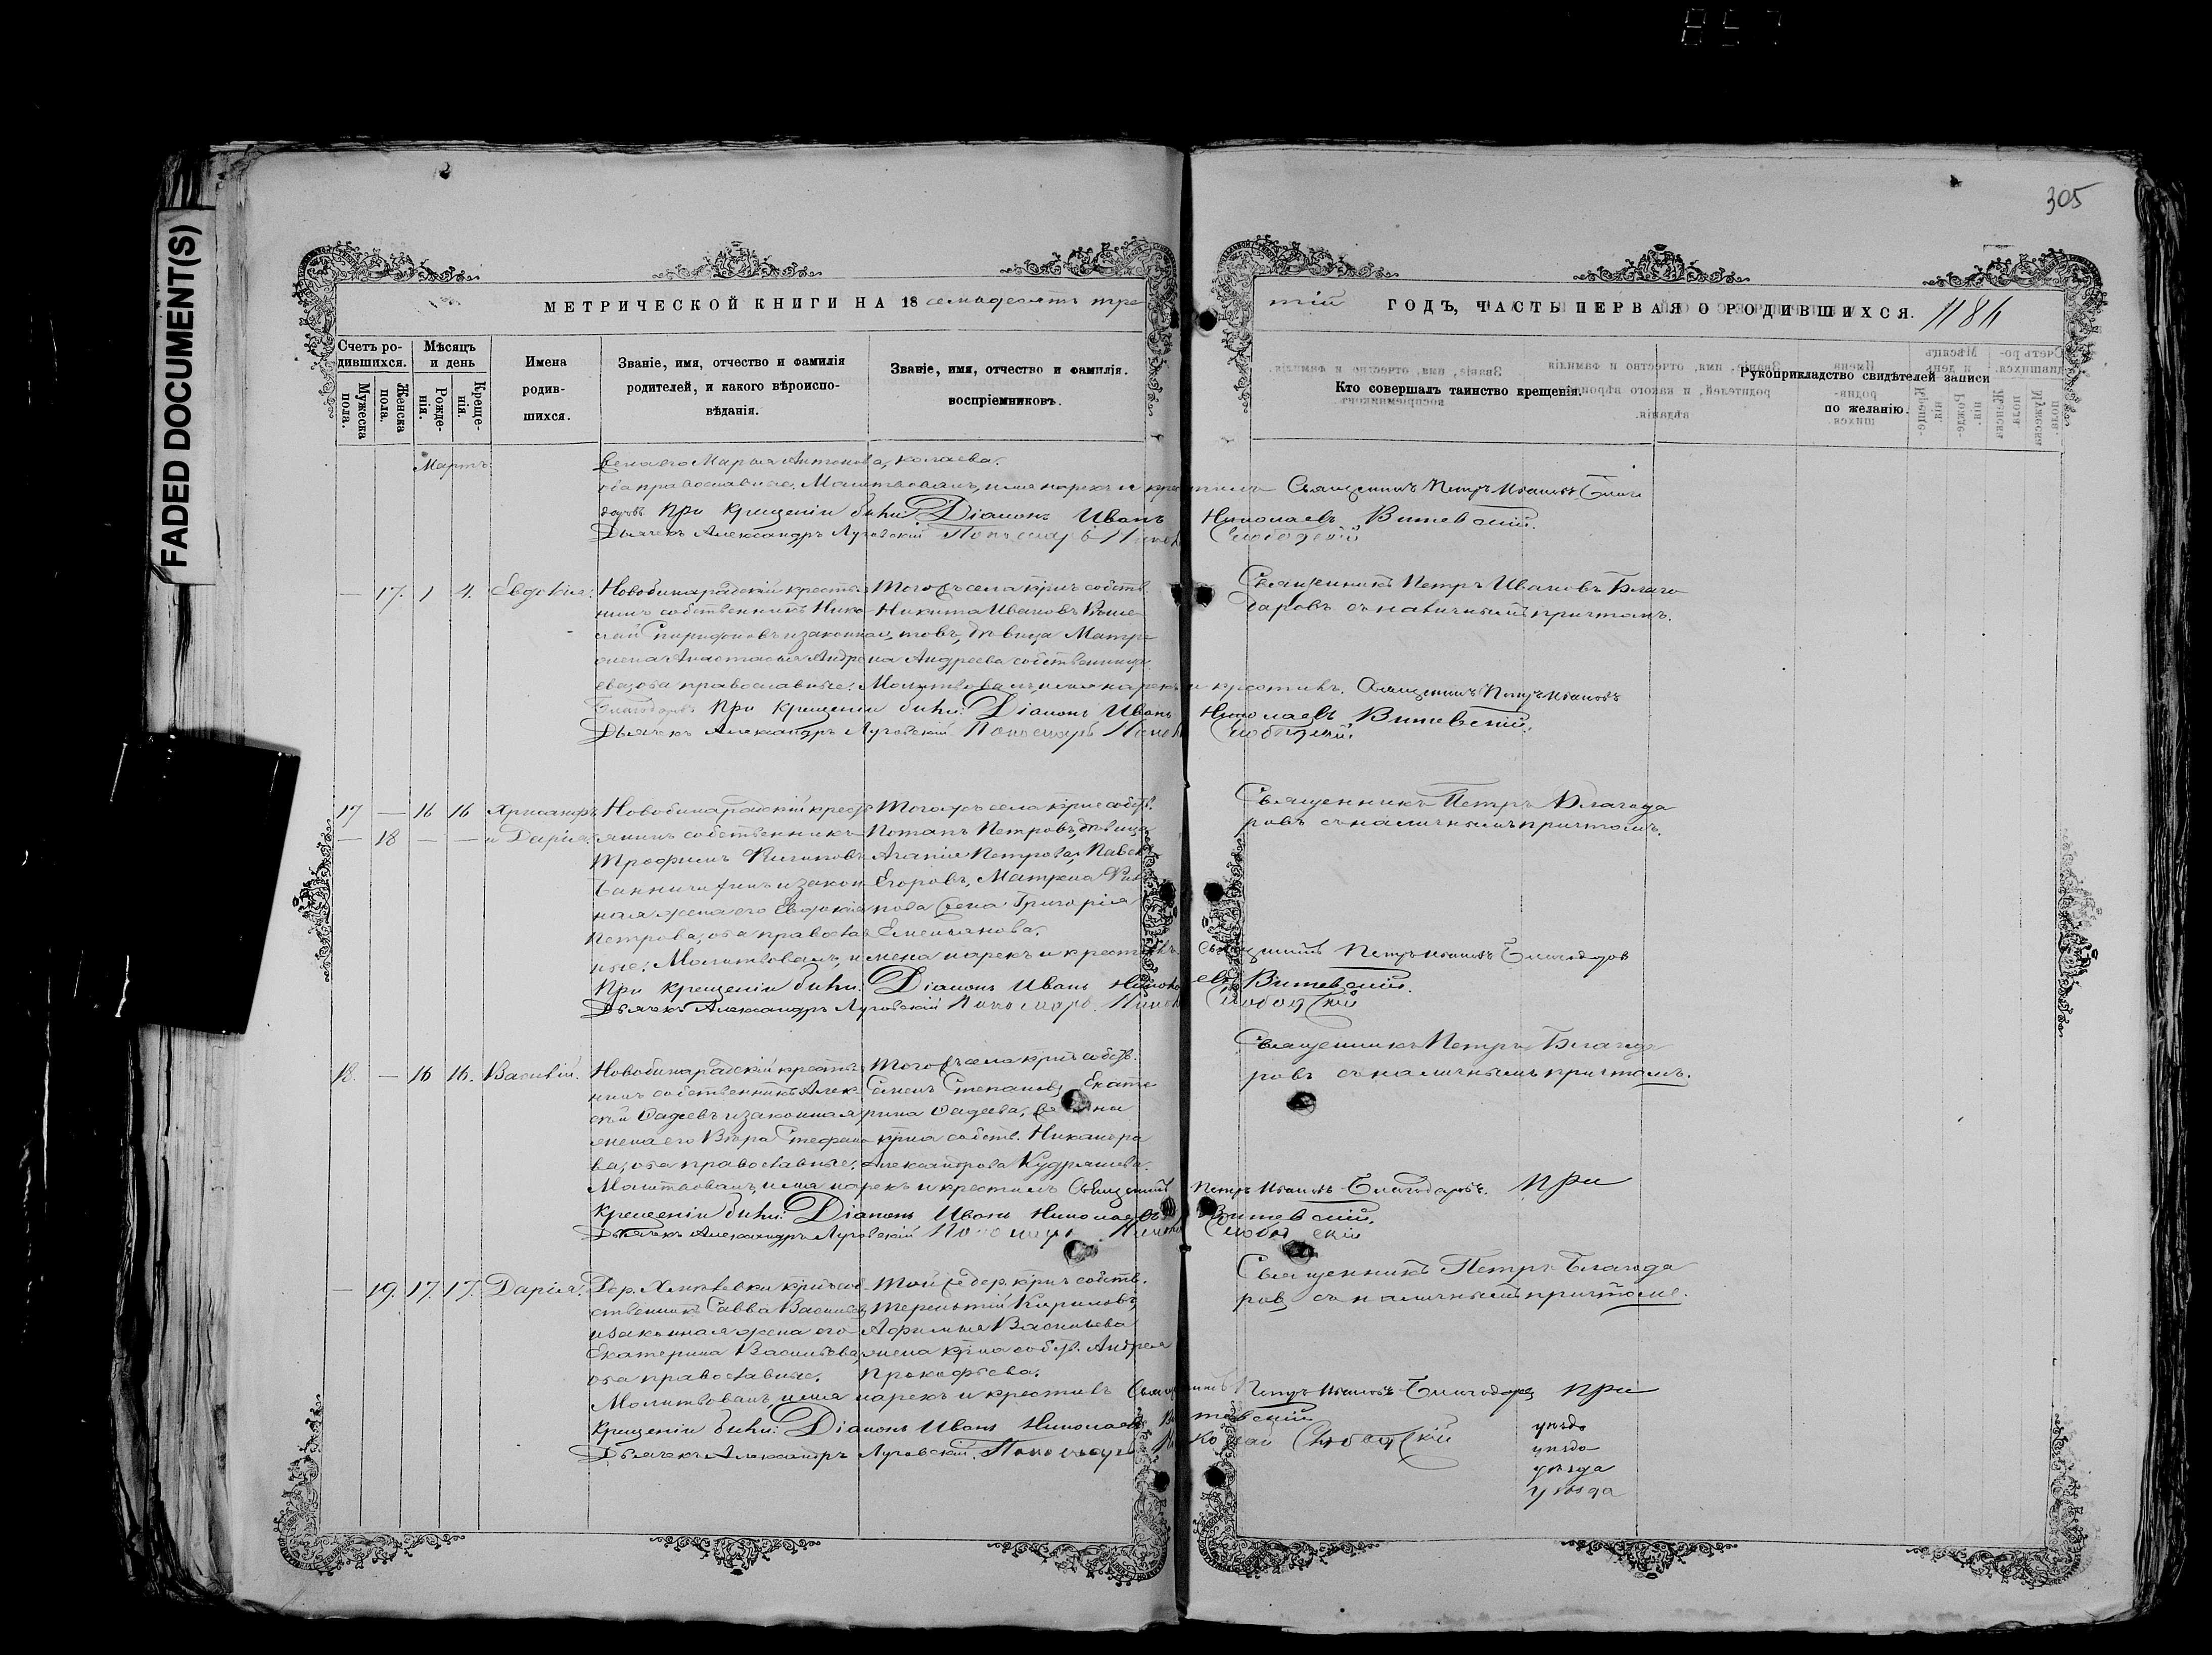 857
FADED DOCUMENT(S)
305
МЕТРИЧЕСКОЙ КНИГИ НА 18 семьдесятъ тре
тій ГОДЪ, ЧАСТЬ ПЕРВАЯ О РОДИВШИХСЯ. 1184
Счетъ ро-
дившихся.
Мужеска пола.
Женска пола.
Мѣсяцъ
и день
Рожде-
нія.
Креще-
нія.
Имена
родив-
шихся.
Званіе, имя, отчество и фамилія
родителей, и какого вѣроиспо-
вѣданія.
Званіе, имя, отчество и фамилія.
воспріемниковъ.
Кто совершалъ таинство крещенія.
Рукоприкладство свидѣтелей записи
по желанію.
Мартъ
жена его Марья Антонова, колаева.
оба православные. Молитвовалъ, имя нарекъ и крестилъ Священникъ Петръ Ивановъ Благо
даровъ При крещеніи были Діаконъ Иванъ Николаевъ Витевскій.
Дьячекъ Александръ Луговскій Пономарь Слободскій
— 17. 1 4. Евдокія.
Новобинарадскій крестья
нинъ собственникъ Нико
лай Спиридоновъ и законная
жена Анастасья Андре
ева, оба православные.
Тогожъ села кр–нъ собств.
Никита Ивановъ
товъ, дѣвица Матре
на Андреева собственница.
Священникъ Петръ Ивановъ Благо
даровъ съ наличнымъ причтомъ.
Молитвовалъ, имя нарекъ и крестилъ. Священникъ Петръ Ивановъ
Благодаровъ При крещеніи были: Діаконъ Иванъ Николаевъ Витевскій.
Дьячекъ Александръ Луговскій Пономарь Слободскій.
17 — 16 16 Хрисанфъ
— 18 — — и Дарія.
Новобинарадскій кресть
янинъ собственникъ
Трофимъ
и закон
ная жена его Евдокія
Петрова, оба православ
ные.
Тогожъ села кр–не собств.
Потапъ Петровъ, дѣвица
Агапія Петрова, Павелъ
Егоровъ, Матрена Фили
пова жена Григорія
Емельянова.
Священникъ Петръ Благода
ровъ съ наличнымъ причтомъ.
Молитвовалъ, имена нарекъ и крестилъ. Священникъ Петръ Ивановъ Благодаров
При крещеніи были: Діаконъ Иванъ Николаевъ Витевскій.
Дьячекъ Александръ Луговскій Пономарь. Слободскій
18. — 16 16. Василій.
Новобинарадскій крестья
нинъ собственникъ Алек
сѣй Фадеевъ и законная
жена его Вѣра Стефано
ва, оба православные.
Тогожъ села кр–нъ собств.
Семенъ Степановъ, Екате
рина Фадеева, жена
кр–на собств. Никанора
Александрова Кудряшева.
Священникъ Петръ Благода
ровъ съ наличнымъ причтомъ.
Молитвовалъ, имя нарекъ и крестилъ Священникъ Петръ Ивановъ Благодаровъ. При
крещеніи были: Діаконъ Иванъ Николаевъ Витевскій.
Дьячекъ Александръ Луговскій Пономарь Слободскій
— 19. 17. 17. Дарія.
Дер. кр–нъ соб
ственникъ Савва Васильевъ
и законная жена его
Екатерина Васильева,
оба православные.
Той же дер. кр–нъ собств.
Терентій Кириловъ,
Афимья Васильева
жена кр–на собств. Андрея
Прокофьева.
Священникъ Петръ Благода
ров, съ наличнымъ причтомъ.
Молитвовалъ, имя нарекъ и крестилъ Священникъ Петръ Ивановъ Благодаровъ При
крещеніи были: Діаконъ Иванъ Николаевъ Витевскій
Дьячекъ Александръ Луговскій. Пономарь Николай Слободскій
уѣзда
уѣзда
уѣзда
уѣзда